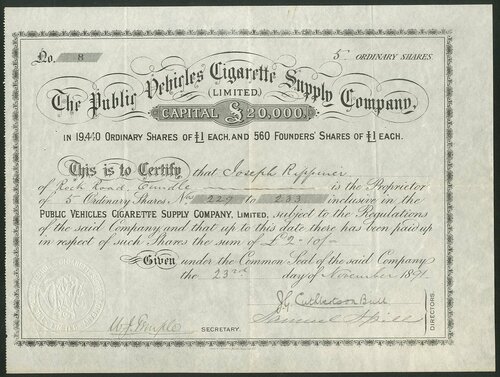 No. 8
5 ORDINARY SHARES
The Public Vehicles Cigarette Supply Company,
(LIMITED,)
CAPITAL £20,000,
IN 19,440 ORDINARY SHARES OF £1 EACH, AND 560 FOUNDERS' SHARES OF £1 EACH.
This is to Certify that Joseph Rippiner
of Rock Road. Oundle is the Proprietor
of 5 Ordinary Shares, Nos 229 to 233 inclusive in the
PUBLIC VEHICLES CIGARETTE SUPPLY COMPANY, LIMITED, subject to the Regulations
of the said Company and that up to this date there has been paid up
in respect of such Shares the sum of £2-10/-
Given under the Common Seal of the said Company
the 23rd day of November 1891
SECRETARY.
Samuel
DIRECTORS.